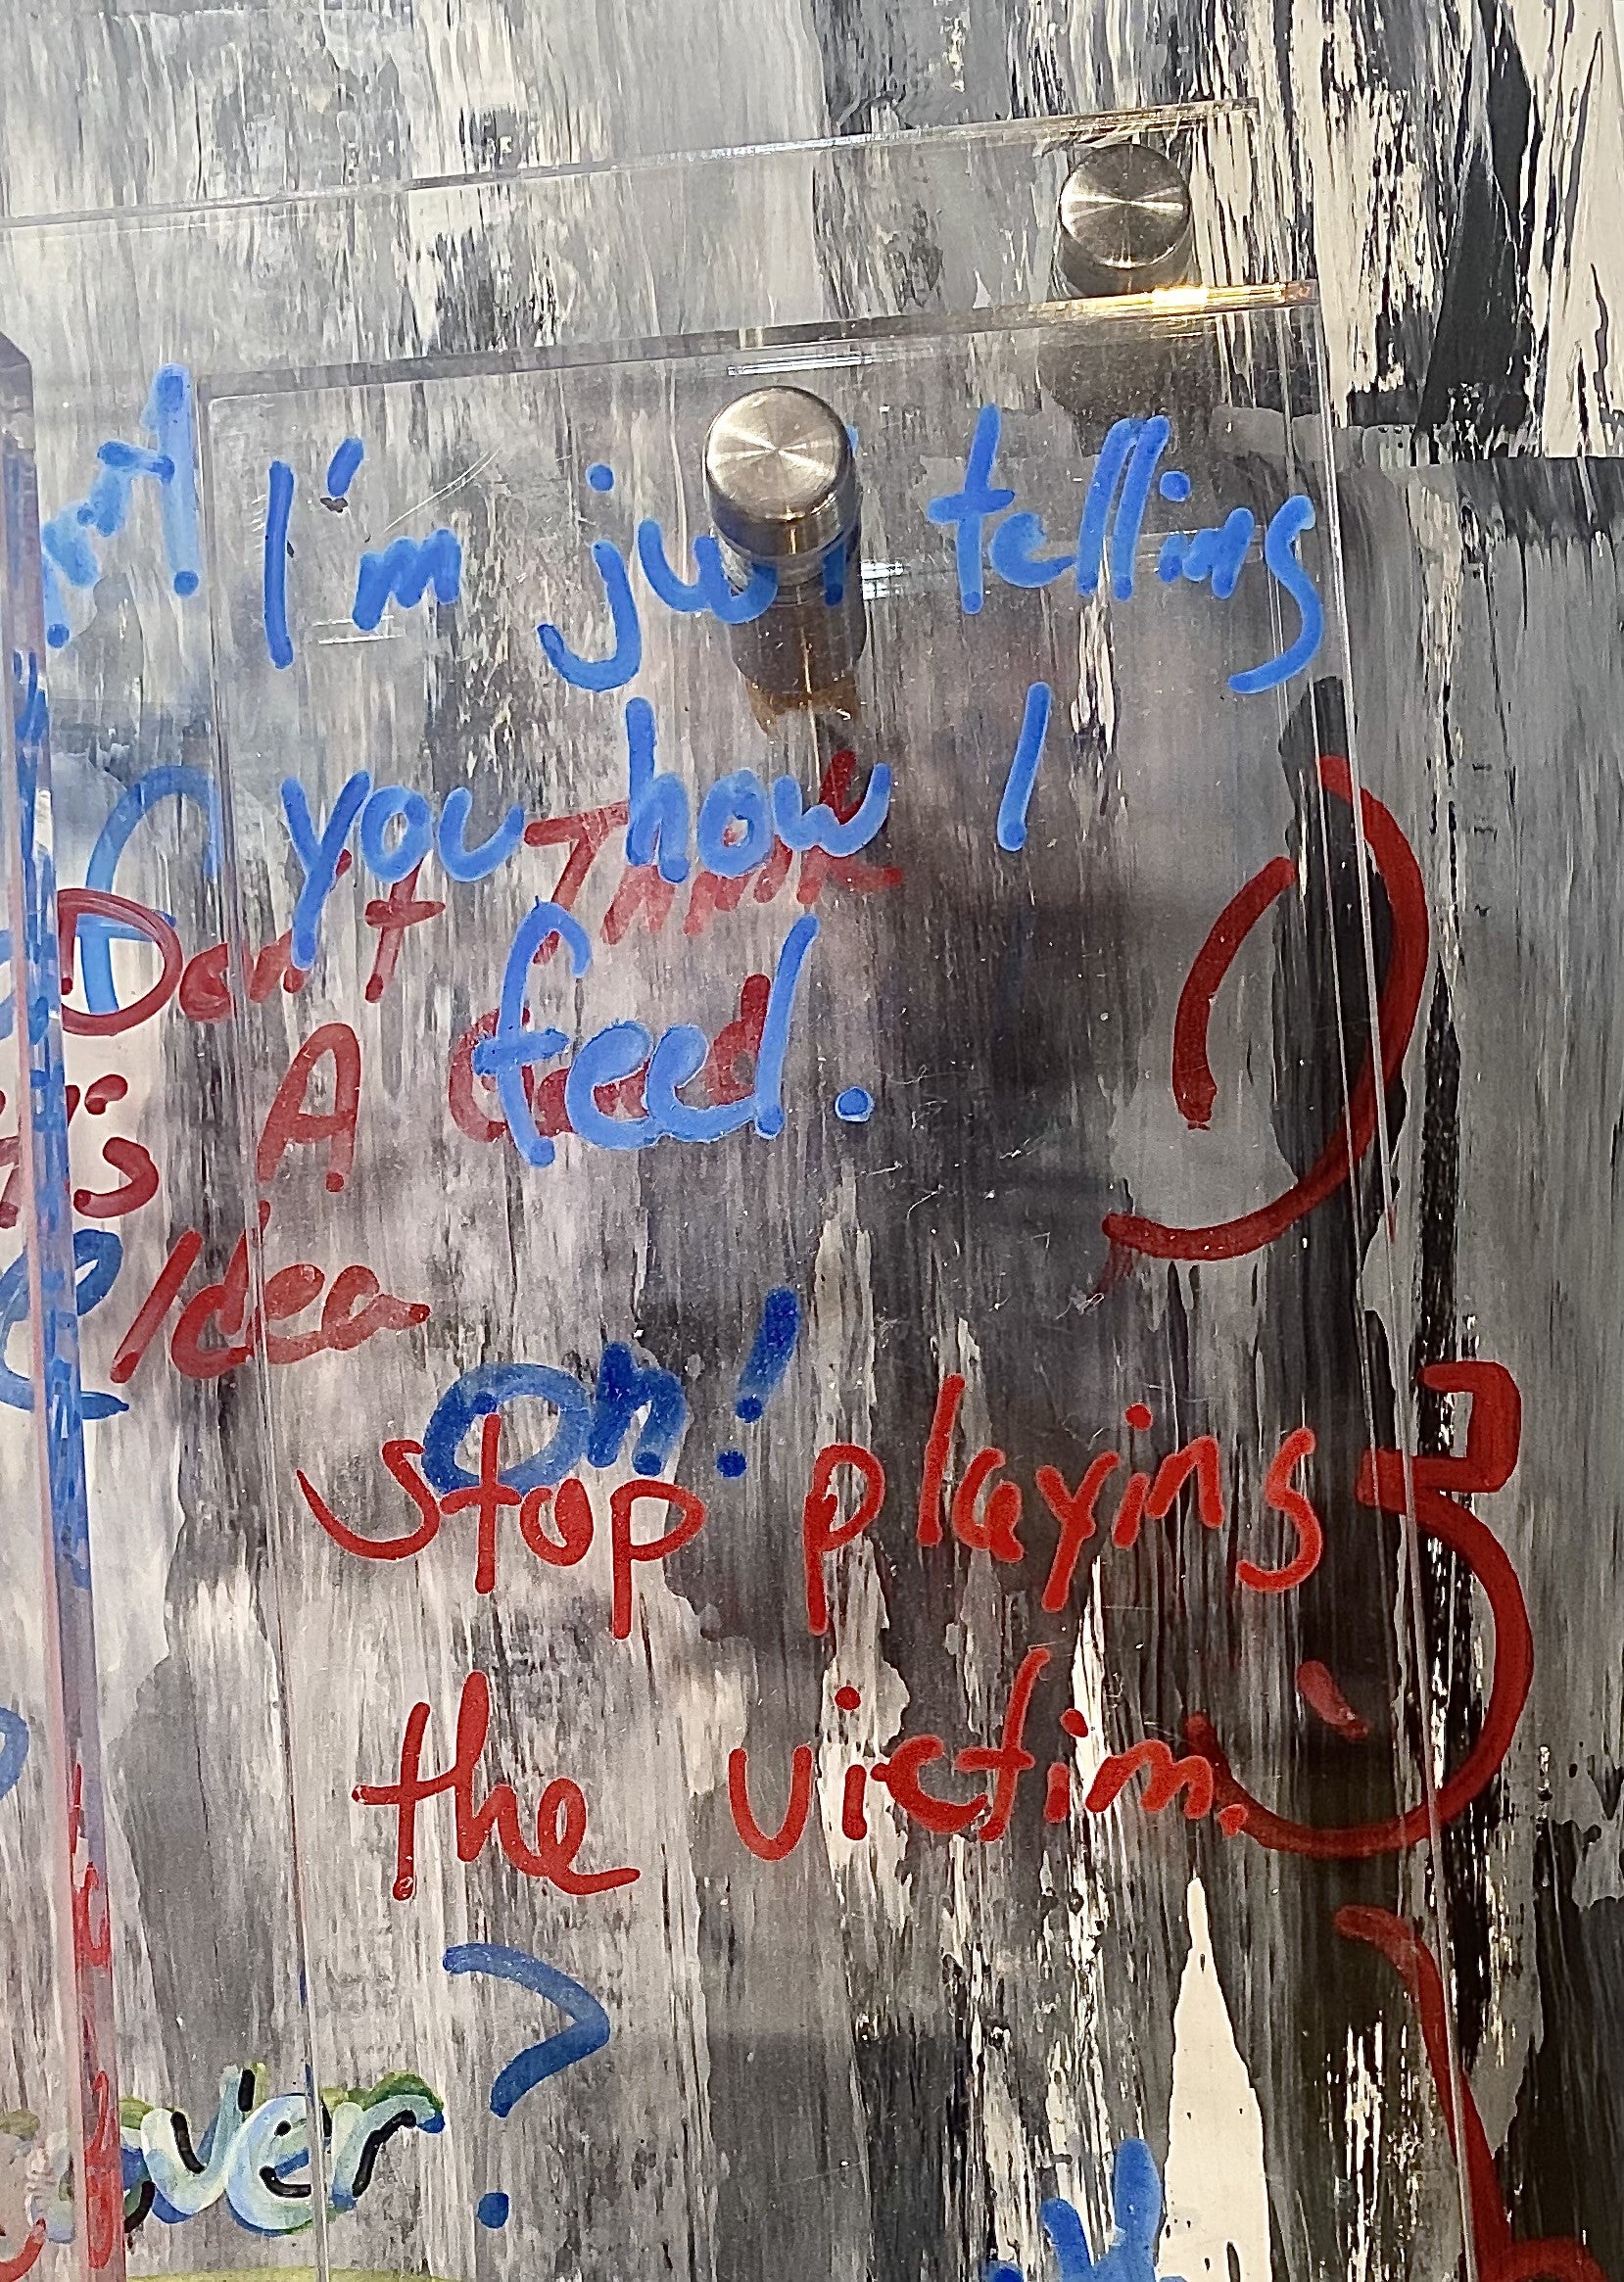 I'm just telling
you how I
feel.
Don't Think
A Good
Idea
on!
stop playing
the victim.
?